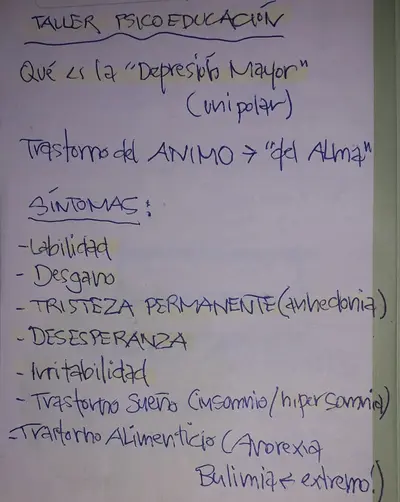 TALLER PSICOEDUCACIÓN
Qué es la "Depresión Mayor"
(unipolar)
Trastorno del ANIMO → "del Alma"
SÍNTOMAS:
- Labilidad
- Desgano
- TRISTEZA PERMANENTE (anhedonia)
- DESESPERANZA
- Irritabilidad
- Trastorno Sueño (insomnio/hipersomnia)
- Trastorno Alimenticio (Anorexia
Bulimia ← extremo!)